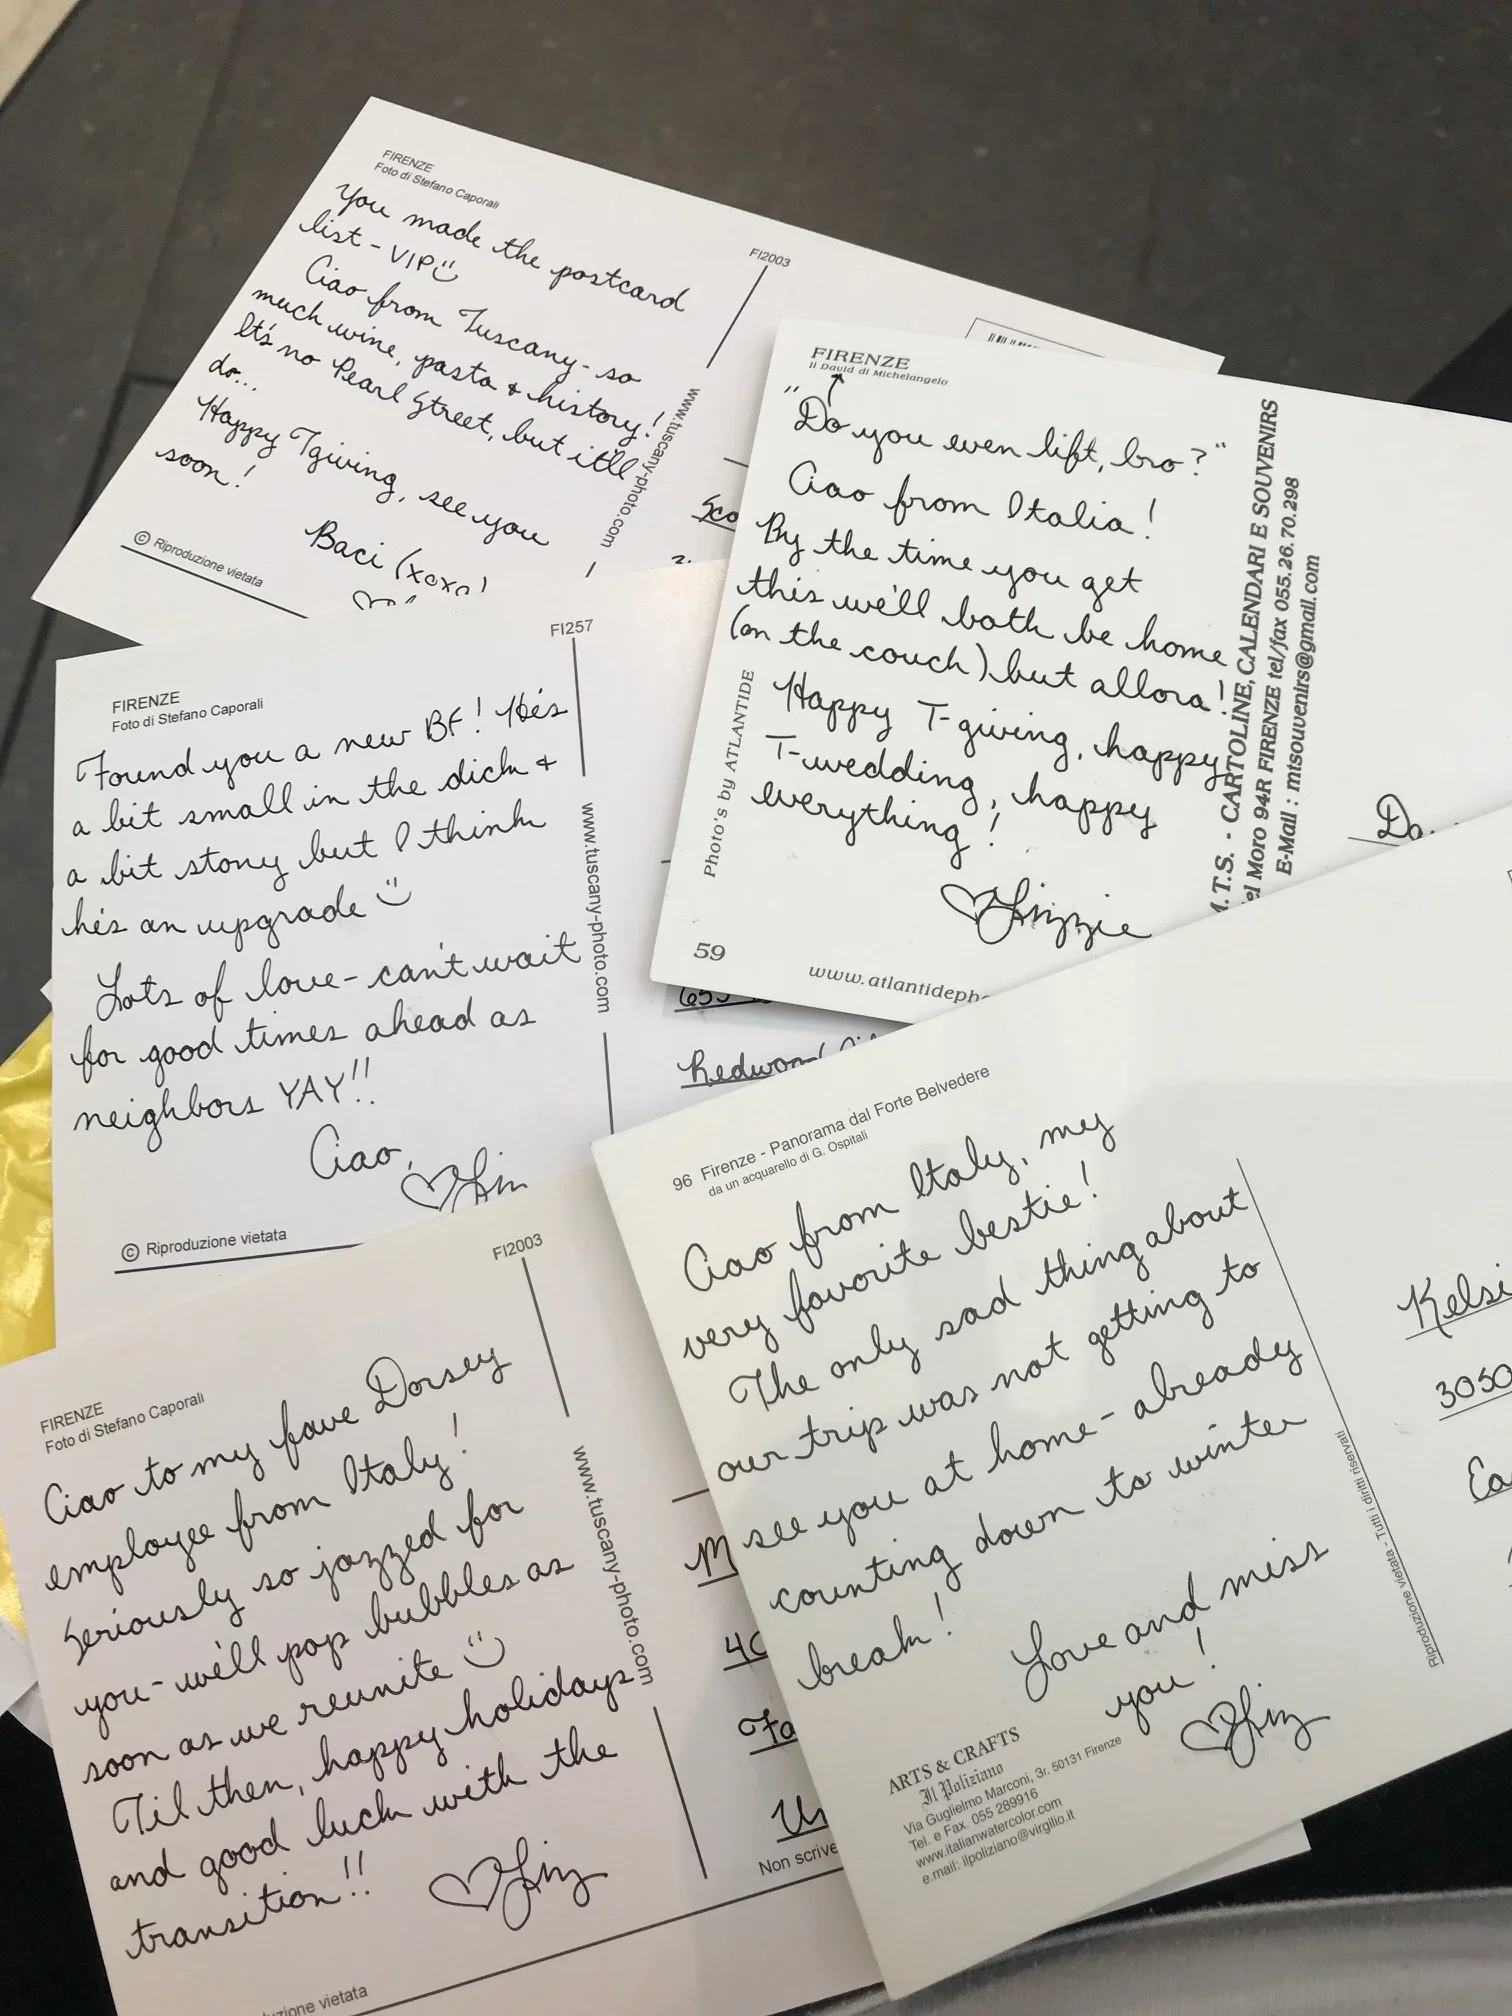 FIRENZE
Foto di Stefano Caporali
You made the postcard
list - VIP
Ciao from Tuscany - so
much wine, pasta & history!
It's no Pearl Street, but it'll
do...
Happy Tgiving, see you
soon!
Baci (xoxo)
© Riproduzione vietata
FI2003
www.tuscany-photo.com
Sco
FIRENZE
Il David di Michelangelo
"Do you even lift, bro?"
Ciao from Italia!
By the time you get
this we'll both be home
(on the couch) but allora!
Happy T-giving, happy
T-wedding, happy
everything!
♡ Lizzie
Photo's by ATLANTIDE
59
www.atlantideph
.T.S. - CARTOLINE, CALENDARI E SOUVENIRS
el Moro 94R FIRENZE tel/fax 055.26.70.298
E-Mail : mtsouvenirs@gmail.com
Da
FIRENZE
Foto di Stefano Caporali
Found you a new BF! He's
a bit small in the dick &
a bit stony but I think
he's an upgrade
Lots of love - can't wait
for good times ahead as
neighbors YAY!!
Ciao,
♡ Liz
© Riproduzione vietata
FI257
www.tuscany-photo.com
655
Redwoo
96 Firenze - Panorama dal Forte Belvedere
da un acquarello di G. Ospitali
Ciao from Italy, my
very favorite bestie!
The only sad thing about
our trip was not getting to
see you at home - already
counting down to winter
break!
Love and miss
you!
♡ Liz
ARTS & CRAFTS
Il Poliziano
Via Guglielmo Marconi, 3r. 50131 Firenze
Tel. e Fax. 055 289916
www.italianwatercolor.com
e.mail: ilpoliziano@virgilio.it
Riproduzione vietata - Tutti i diritti riservati
Kelsi
3050
Ea
FIRENZE
Foto di Stefano Caporali
Ciao to my fave Dorsey
employee from Italy!
Seriously so jazzed for
you - we'll pop bubbles as
soon as we reunite
Til then, happy holidays
and good luck with the
transition!!
♡ Liz
uzione vietata
FI2003
www.tuscany-photo.com
M
40
Fa
Un
Non scrive